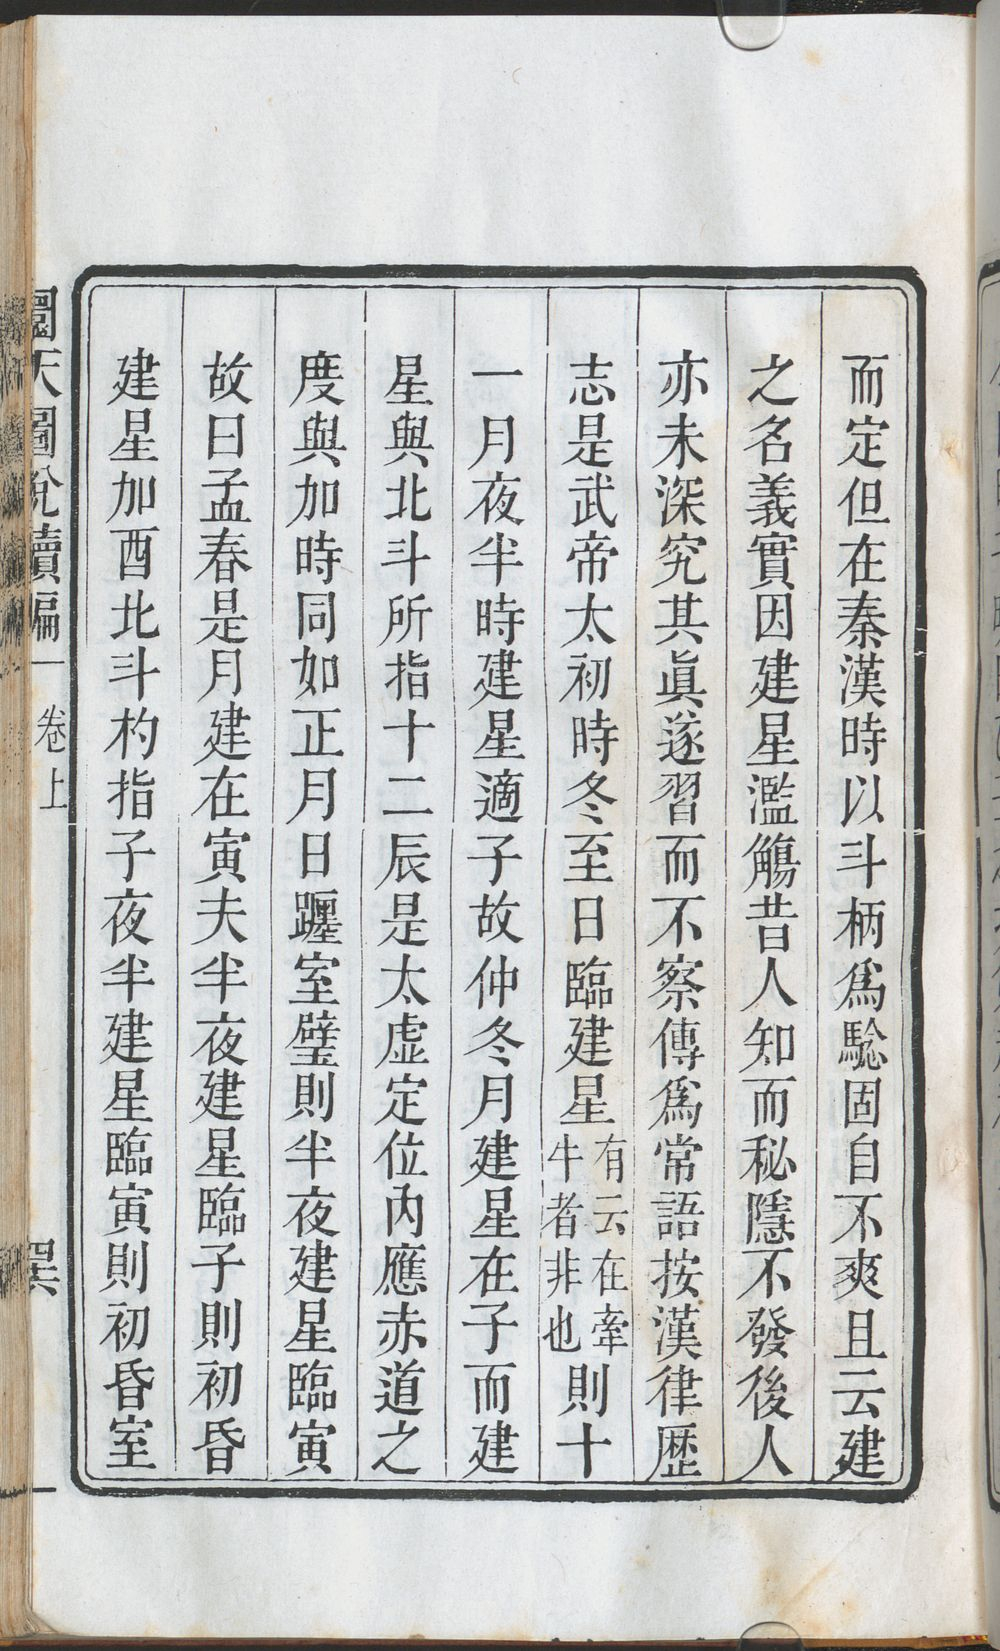 而定但在秦漢時以斗柄爲騐固自不爽且云建
之名義實因建星濫觴昔人知而秘隱不發後人
亦未深究其眞遂習而不察傳爲常語按漢律歷
志是武帝太初時冬至日臨建星有云在牽牛者非也則十
一月夜半時建星適子故仲冬月建星在子而建
星與北斗所指十二辰是太虛定位內應赤道之
度與加時同如正月日躔室壁則半夜建星臨寅
故曰孟春是月建在寅夫半夜建星臨子則初昏
建星加酉北斗杓指子夜半建星臨寅則初昏室
圜天圖說續編 卷上